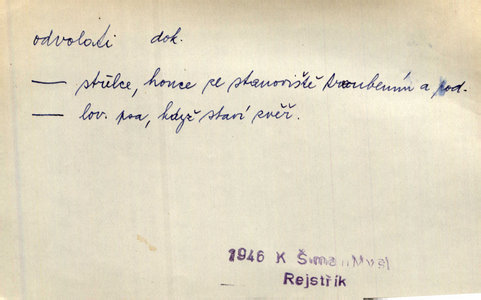 odvolati dok.
— střelce, honce ze stanoviště troubením a pod.
— lov. psa, když staví zvěř.
1946 K Šiman, Mysl
Rejstřík